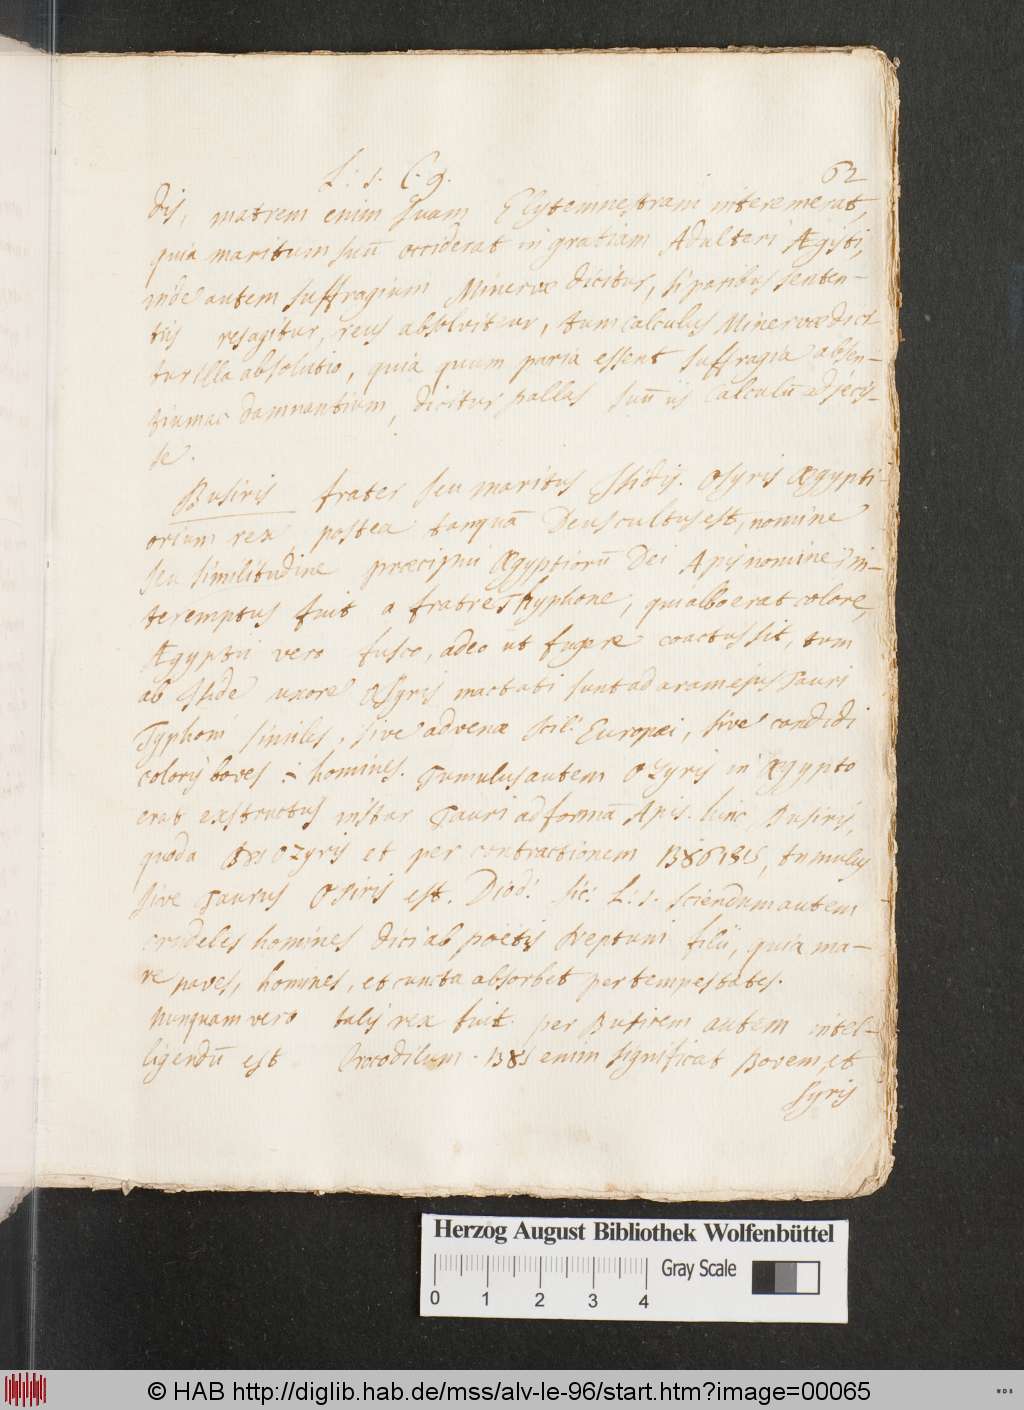 L: 1. C. 9. 62
dis, matrem enim suam Clytemnestram interemerat,
quia maritum suū occiderat in gratiam Adulteri Ægisti,
inde autem suffragium Minervæ dicitur, si paribus senten-
tiis res agitur, reus absolvitur, tum calculus Minervæ dici-
tur illa absolutio, quia quum paria essent suffragia absen-
tium ac damnantium, dicitur pallas suū iis Calculū adjecis-
se.
Busiris frater seu maritus Isidis. Osyris Ægypti-
orium rex postea tanquā Deus cultus est, nomine
seu similitudine præcipui Ægyptiorū Dei Apis nomine in-
teremptus fuit a fratre Thyphone, qui albo erat colore,
Ægyptii vero fusco, adeo ut fugere coactus sit, tum
ab Iside uxore Osyris mactati sunt ad aram ejus Tauri
Typhoni similes, sive advenæ scil: Europæi, sive candidi
coloris boves homines. Tumulus autem Ozyris in Ægypto
erat exstructus instar Tauri ad formā Apis. hinc Busiris,
quoda Ozyris et per contractionem tumulus
sive Taurus Osiris est. Diod: Sic: L: 1. Sciendum autem
crudeles homines dici ab poëtis Neptuni filii, quia ma-
re naves, homines, et cuncta absorbet per tempestates.
Nunquam vero talis rex fuit. per Busirem autem intel-
ligendū est Crocodilum. enim significat Bovem, et
syris
Herzog August Bibliothek Wolfenbüttel
0 1 2 3 4 Gray Scale
© HAB http://diglib.hab.de/mss/alv-le-96/start.htm?image=00065